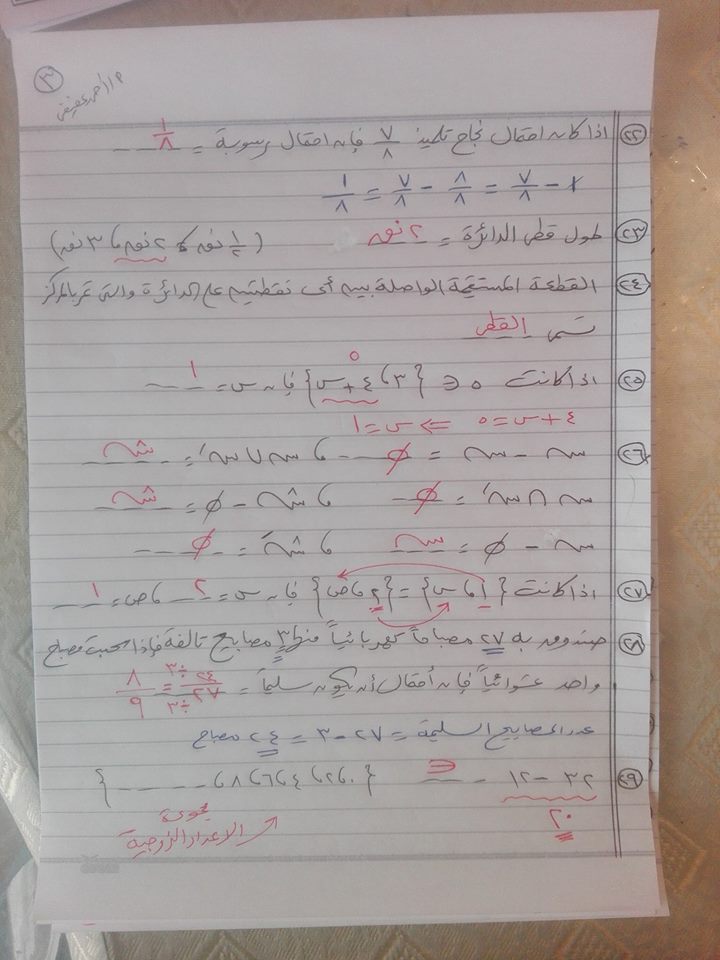 ٣
م/أحمد عفيفى
٢٢ اذا كان احتمال نجاح تلميذ ٧/٨ فإن احتمال رسوبة = ١/٨
١ - ٧/٨ = ٨/٨ - ٧/٨ = ١/٨
٢٣ طول قطر الدائرة = ٢ نق (١/٢ نق ، ٢ نق ، ٣ نق)
٢٤ القطعة المستقيمة الواصلة بين أى نقطتين على الدائرة والتى تمر بالمركز
تسمى القطر
٥
٢٥ اذا كانت ٥ ∈ {٣ ، ٤ + س} فإن س = ١
٤ + س = ٥ ⇐ س = ١
٢٦ سـ - سـ = ∅ ، سـ ∪ سـَ = شـ
سـ ∩ سـَ = ∅ ، شـ - ∅ = شـ
سـ - ∅ = سـ ، شـَ = ∅
٢٧ اذا كانت {١ ، س} = {٢ ، ص} فإن س = ٢ ، ص = ١
٢٨ صندوق به ٢٧ مصباحاً كهربائياً منها ٣ مصابيح تالفة فإذا سحبت مصباح
واحد عشوائياً فإن أحتمال أن يكون سليماً = ٢٤ ÷ ٣/٢٧ ÷ ٣ = ٨/٩
عدد المصابيح السليمة = ٢٧ - ٣ = ٢٤ مصباح
٢٩ ٣٢ - ١٢ ∈ {٠ ، ٢ ، ٤ ، ٦ ، ٨ ، ------}
٢٠
الاعداد الزوجية